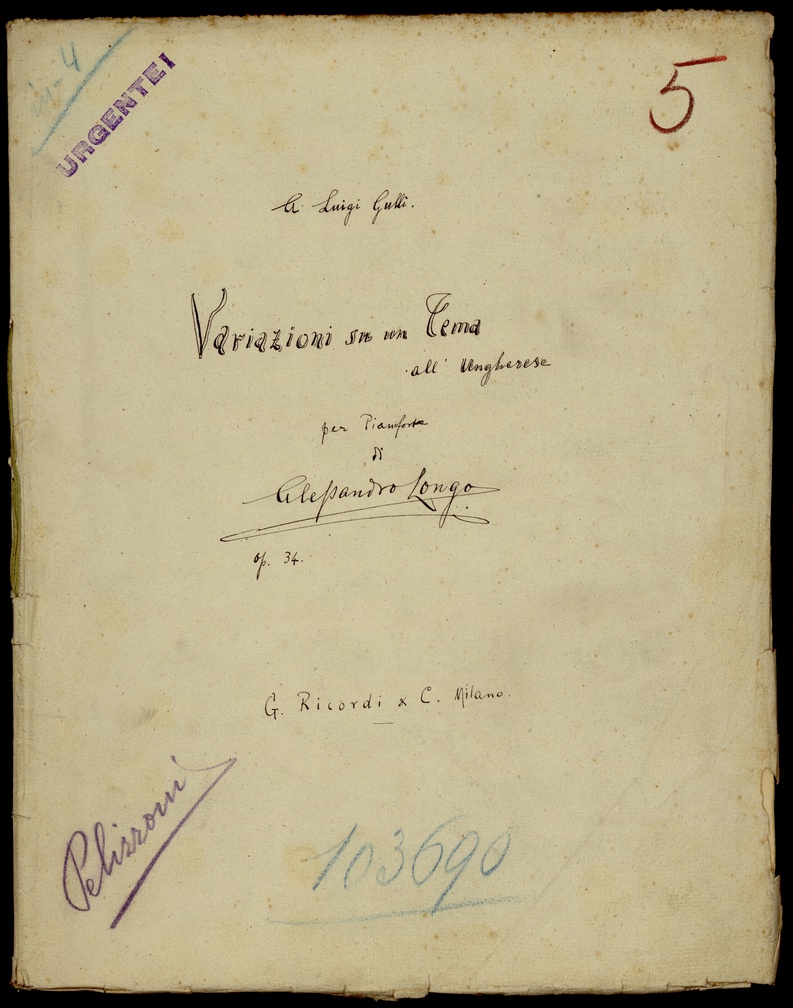 in-4
URGENTE!
5
A Luigi Gulli.
Variazioni su un Tema
all' Ungherese
per Pianoforte
di
Alessandro Longo
op. 34.
G. Ricordi & C. Milano.
Pelizzoni
103690